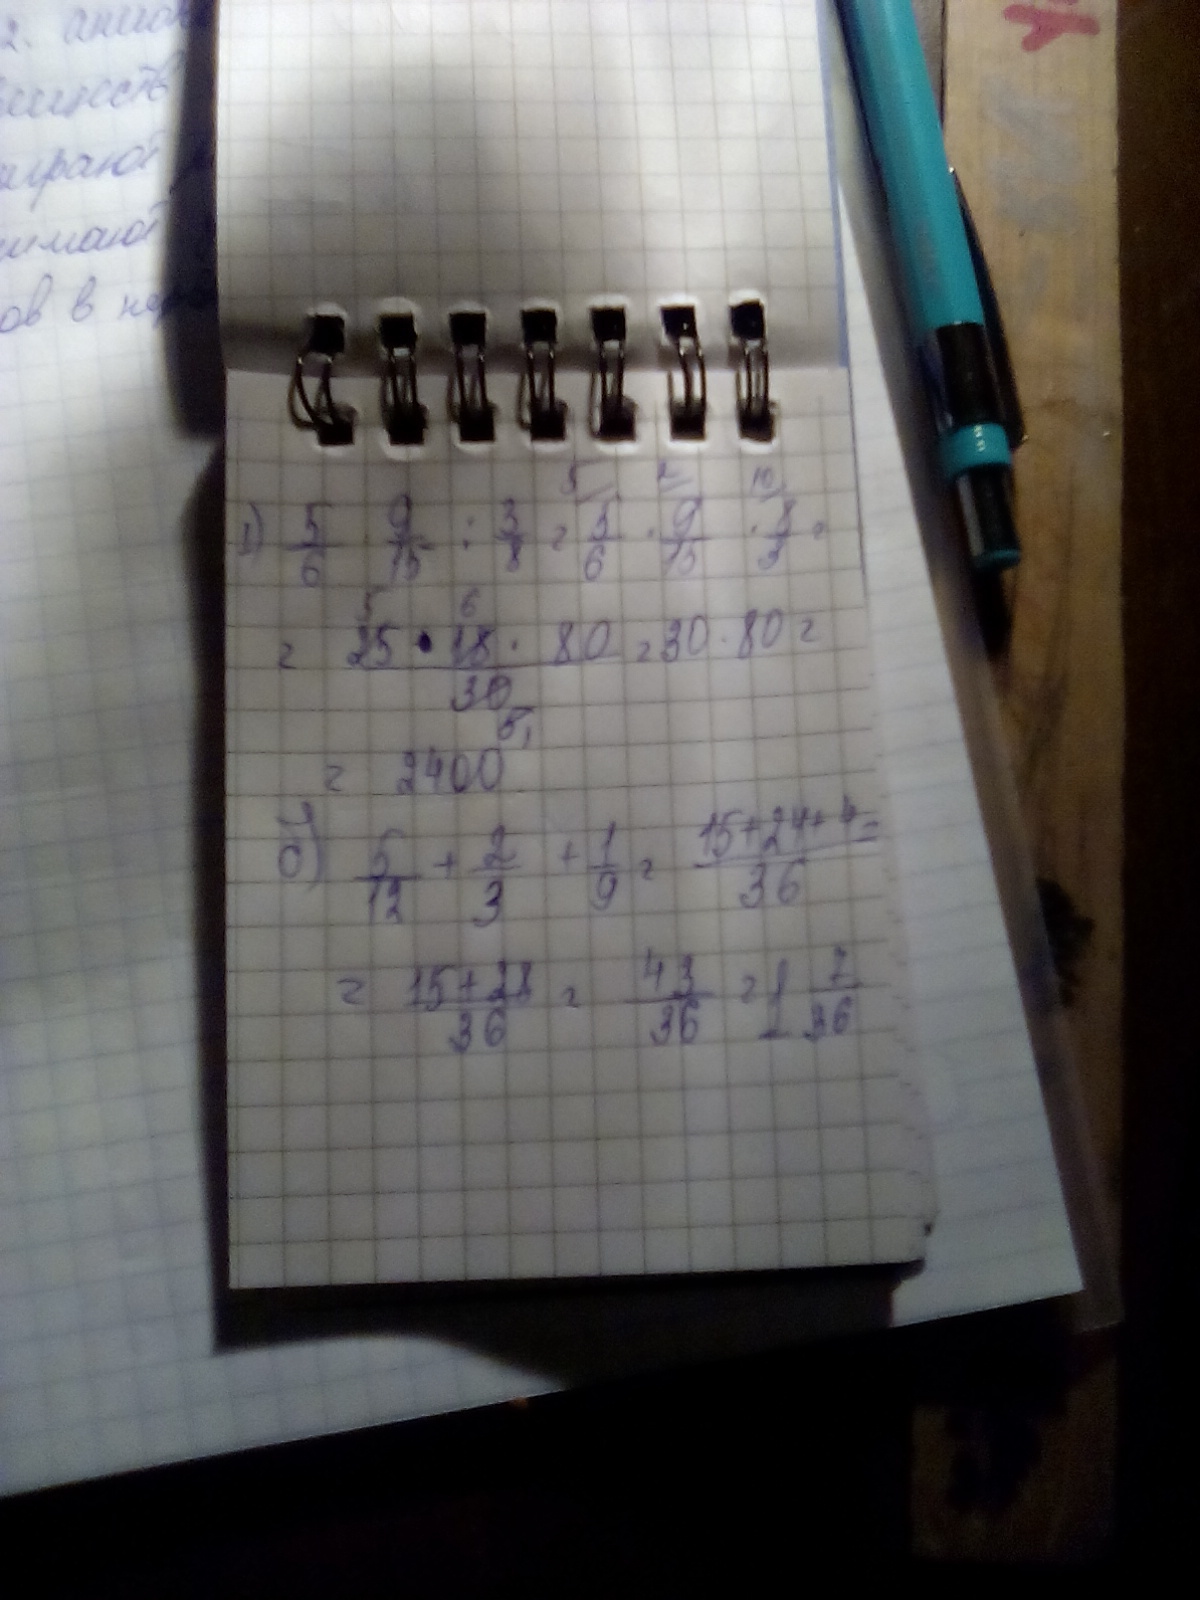 2.
ов в
1) 5/6 · 9/15 : 3/8 = 5/6 · 9/15 · 8/3 =
= 25 · 18 · 80 / 30 = 30 · 80 =
= 2400
б) 5/12 + 2/3 + 1/9 = 15+24+4 / 36 =
= 15+28 / 36 = 43/36 = 1 7/36